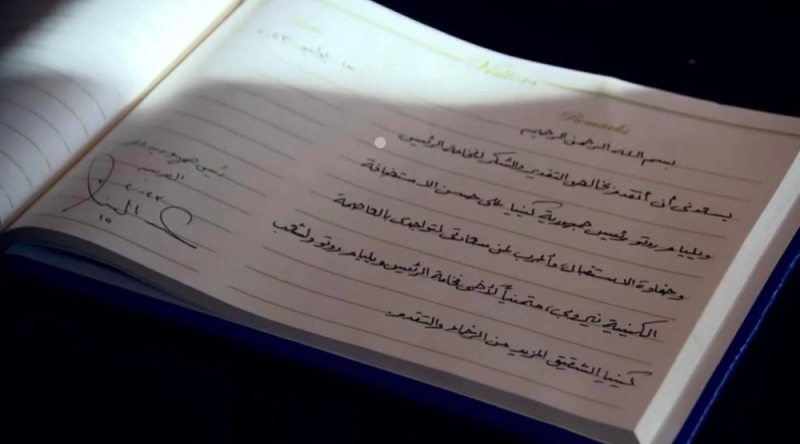 Date
Name
Remarks
١٥ يوليو ٢٠٢٣
بسم الله الرحمن الرحيم
يسعدني أن أتقدم بخالص التقدير والشكر لفخامة الرئيس
ويليام روتو رئيس جمهورية كينيا على حسن الاستضافة
وحفاوة الاستقبال وأعرب عن سعادتي لتواجدي بالعاصمة
الكينية نيروبي، متمنياً لأخي فخامة الرئيس ويليام روتو ولشعب
كينيا الشقيق المزيد من الرخاء والتقدم.
رئيس جمهورية مصر
العربية